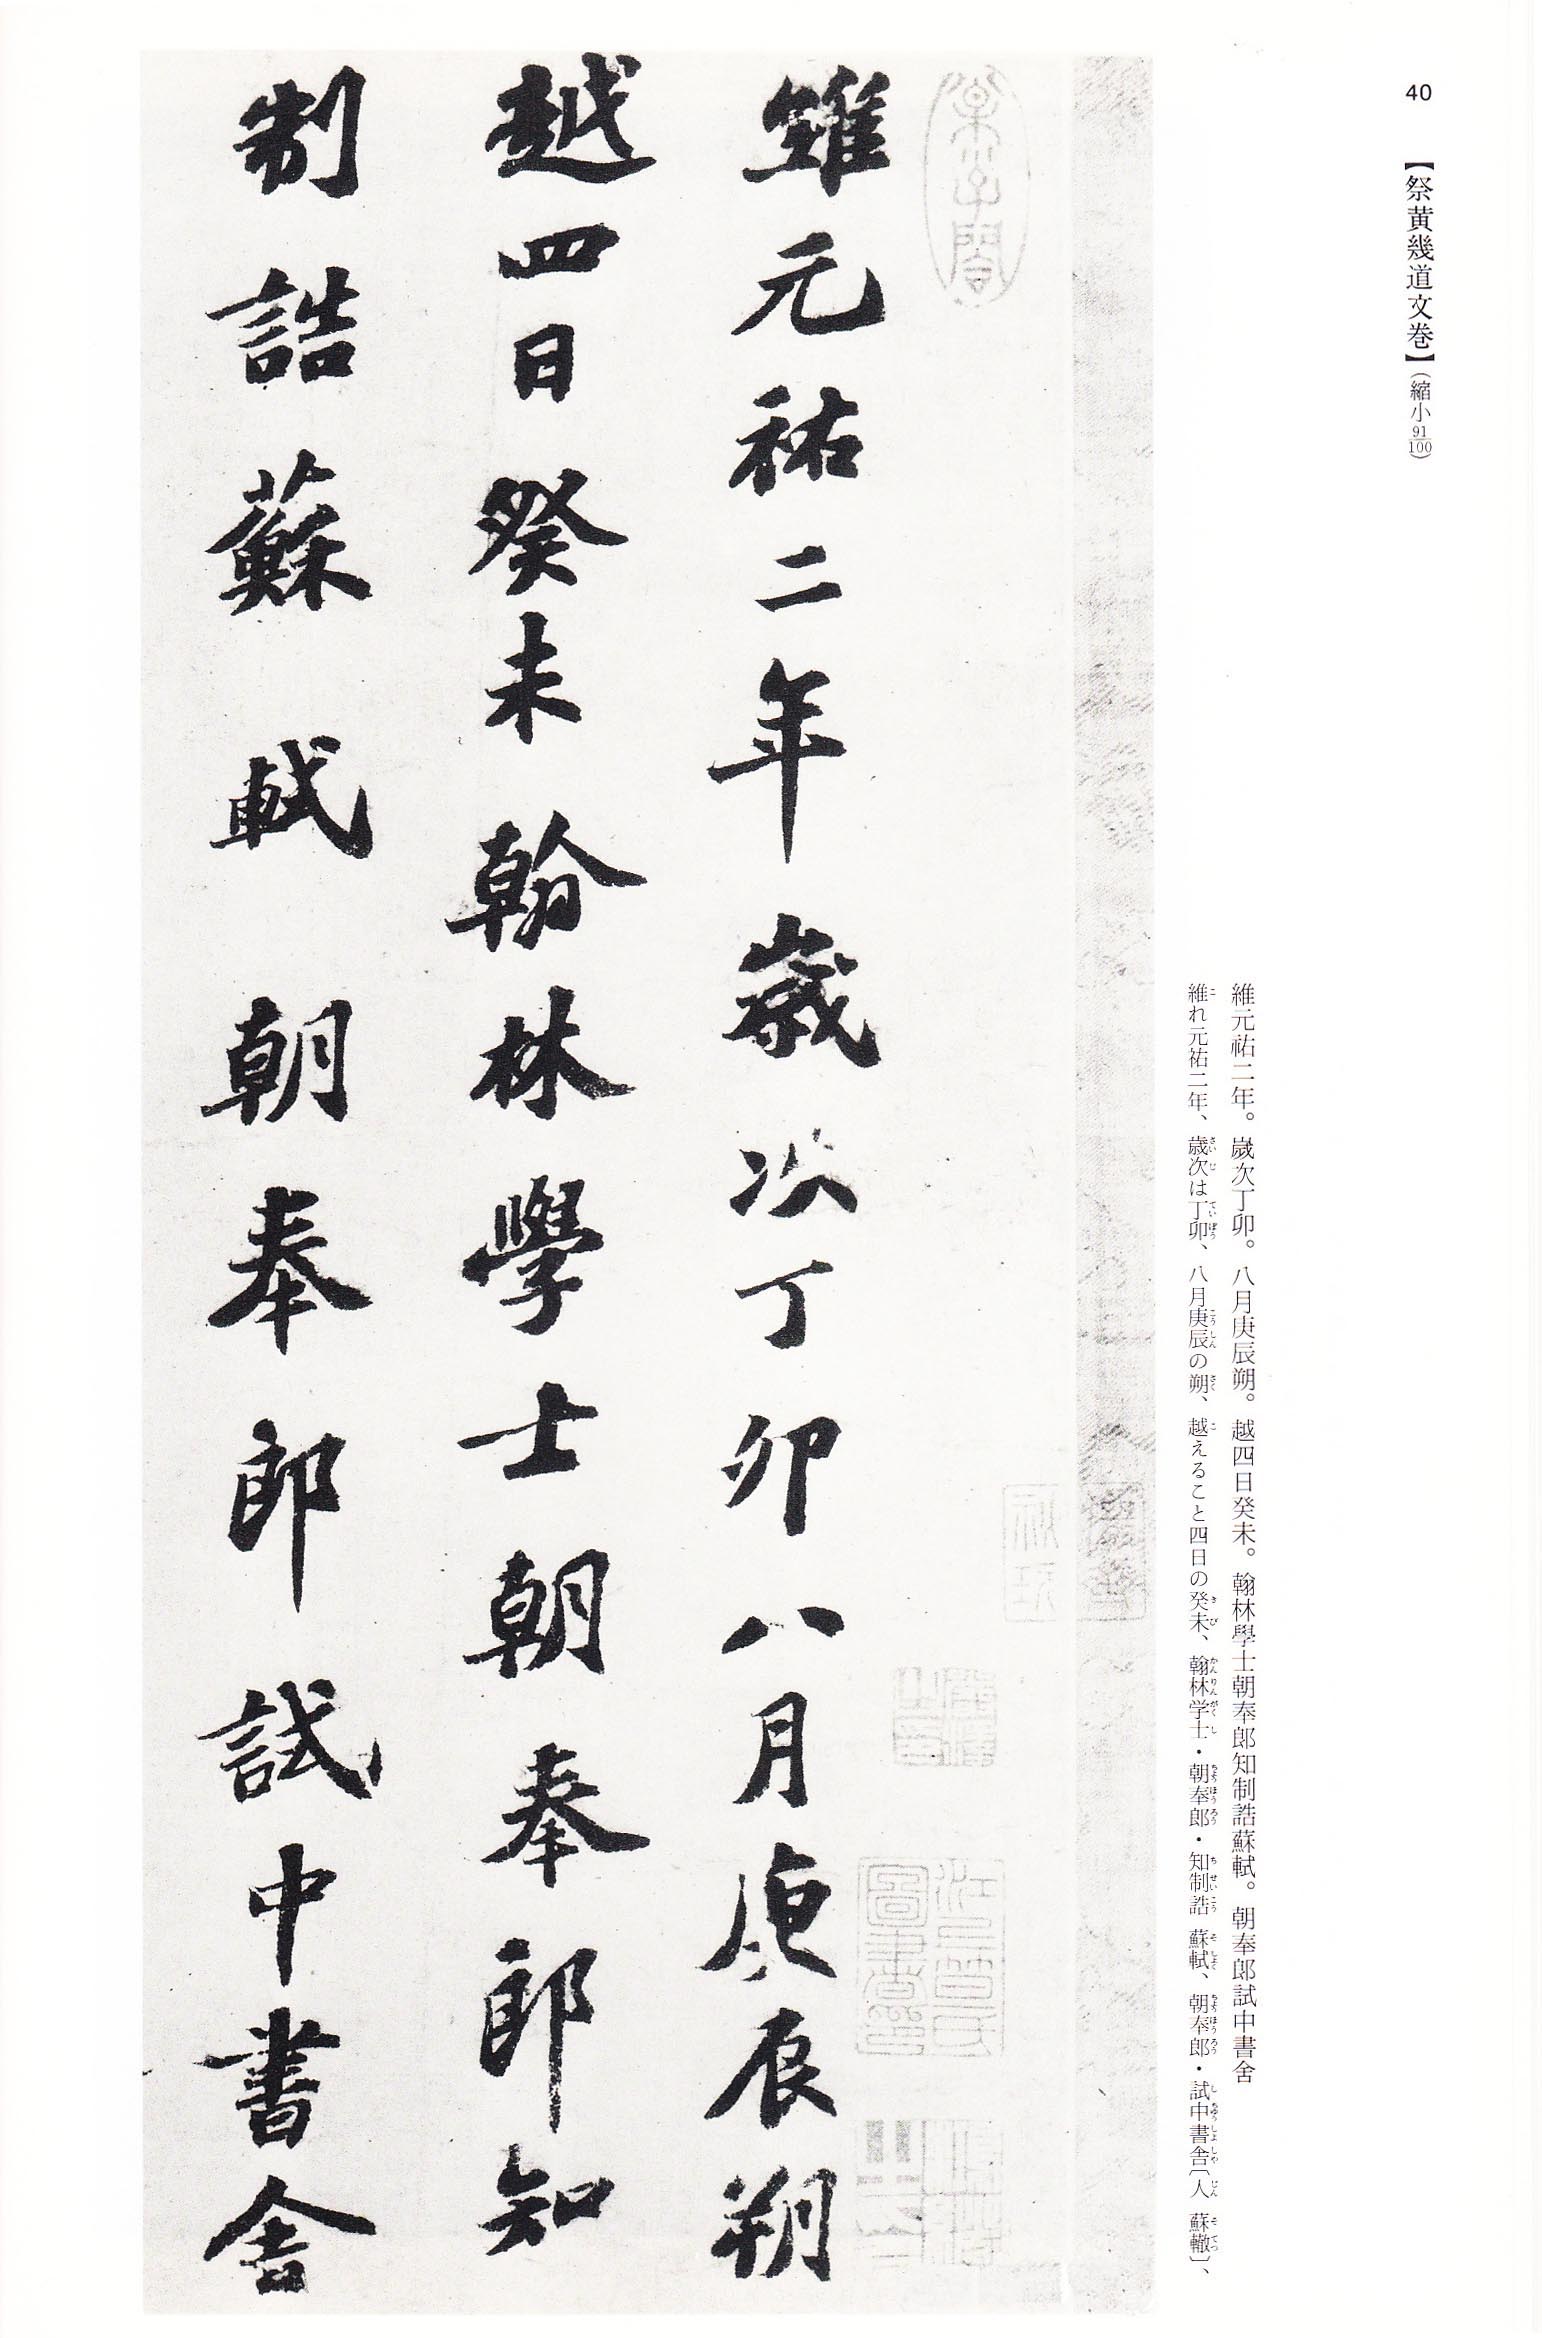 40
【祭黄幾道文巻】(縮小91/100)
維元祐二年。歲次丁卯。八月庚辰朔。越四日癸未。翰林學士朝奉郎知制誥蘇軾。朝奉郎試中書舍
維れ元祐二年、歳次は丁卯、八月庚辰の朔、越えること四日の癸未、翰林学士・朝奉郎・知制誥 蘇軾、朝奉郎・試中書舎〔人 蘇轍〕、
維元祐二年歲次丁卯八月庚辰朔
越四日癸未翰林學士朝奉郎知
制誥蘇軾朝奉郎試中書舍